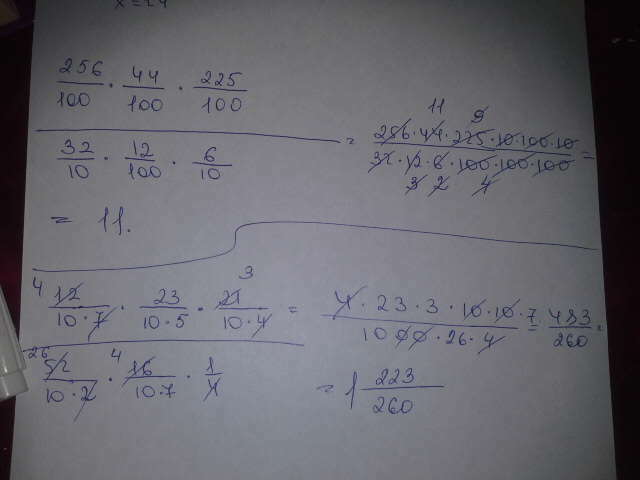 x = 24
256/100 · 44/100 · 225/100
32/10 · 12/100 · 6/10
= 256 · 44 · 225 · 10 · 100 · 10 / 32 · 12 · 6 · 100 · 100 · 100 =
11 9
3 2 4
= 11.
4 12/10 · 7 · 23/10 · 5 · 3 21/10 · 4 =
26 52/10 · 2 · 4 16/10 · 7 · 1/4
4 · 23 · 3 · 10 · 10 · 7 / 1000 · 26 · 4 = 483/260 =
= 1 223/260